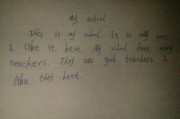 My school
This is my school. It is my one
I like it here. My school have many
teachers. They are good teachers I
like they best.